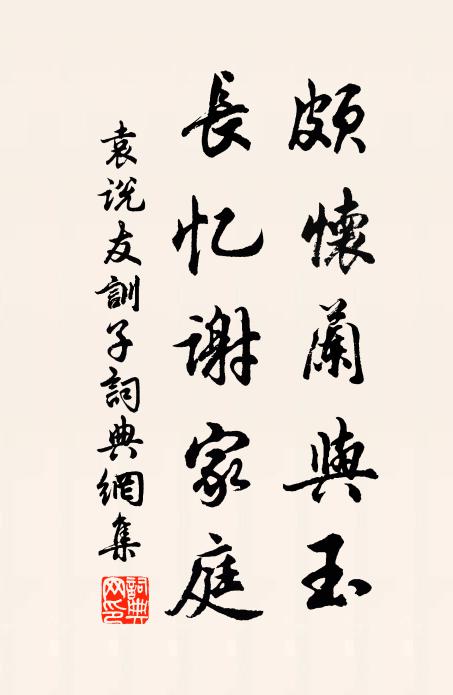 頗懷蘭與玉
長忆謝家庭
袁说友訓子詞典網集
詞典網印